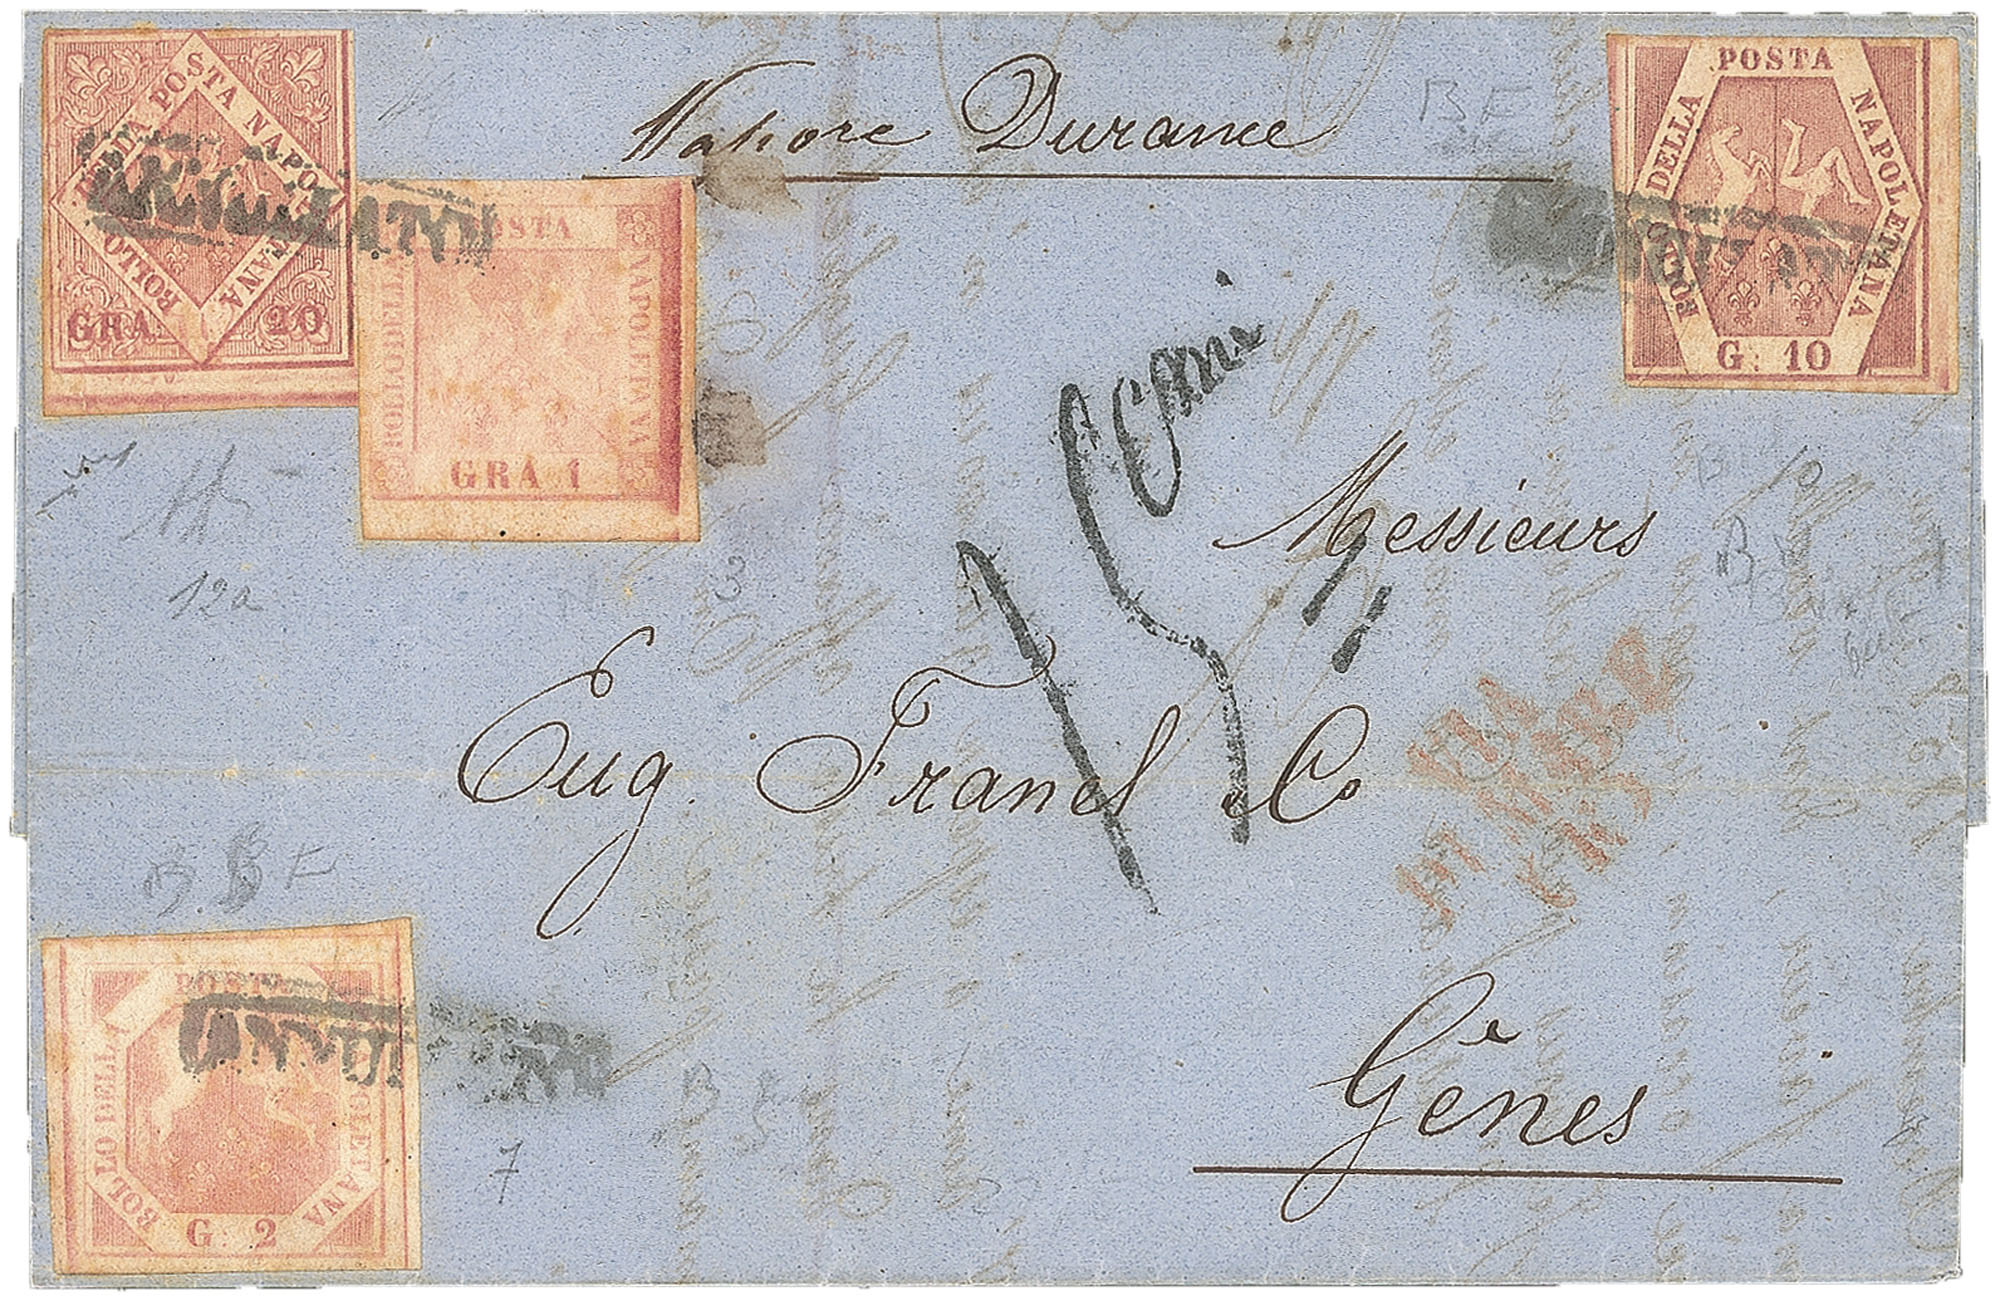 Vapore Durance
BOLLO DELLA POSTA NAPOLETANA
GRA 20
ANNULLATO
BOLLO DELLA POSTA NAPOLETANA
GRA 1
BOLLO DELLA POSTA NAPOLETANA
G. 10
ANNULLATO
B F
12a
3
10
15 Cmi
Messieurs
Eug. Franel & Co
VIA
DI MARE
Gênes
BOLLO DELLA POSTA NAPOLETANA
G. 2
ANNULLATO
7